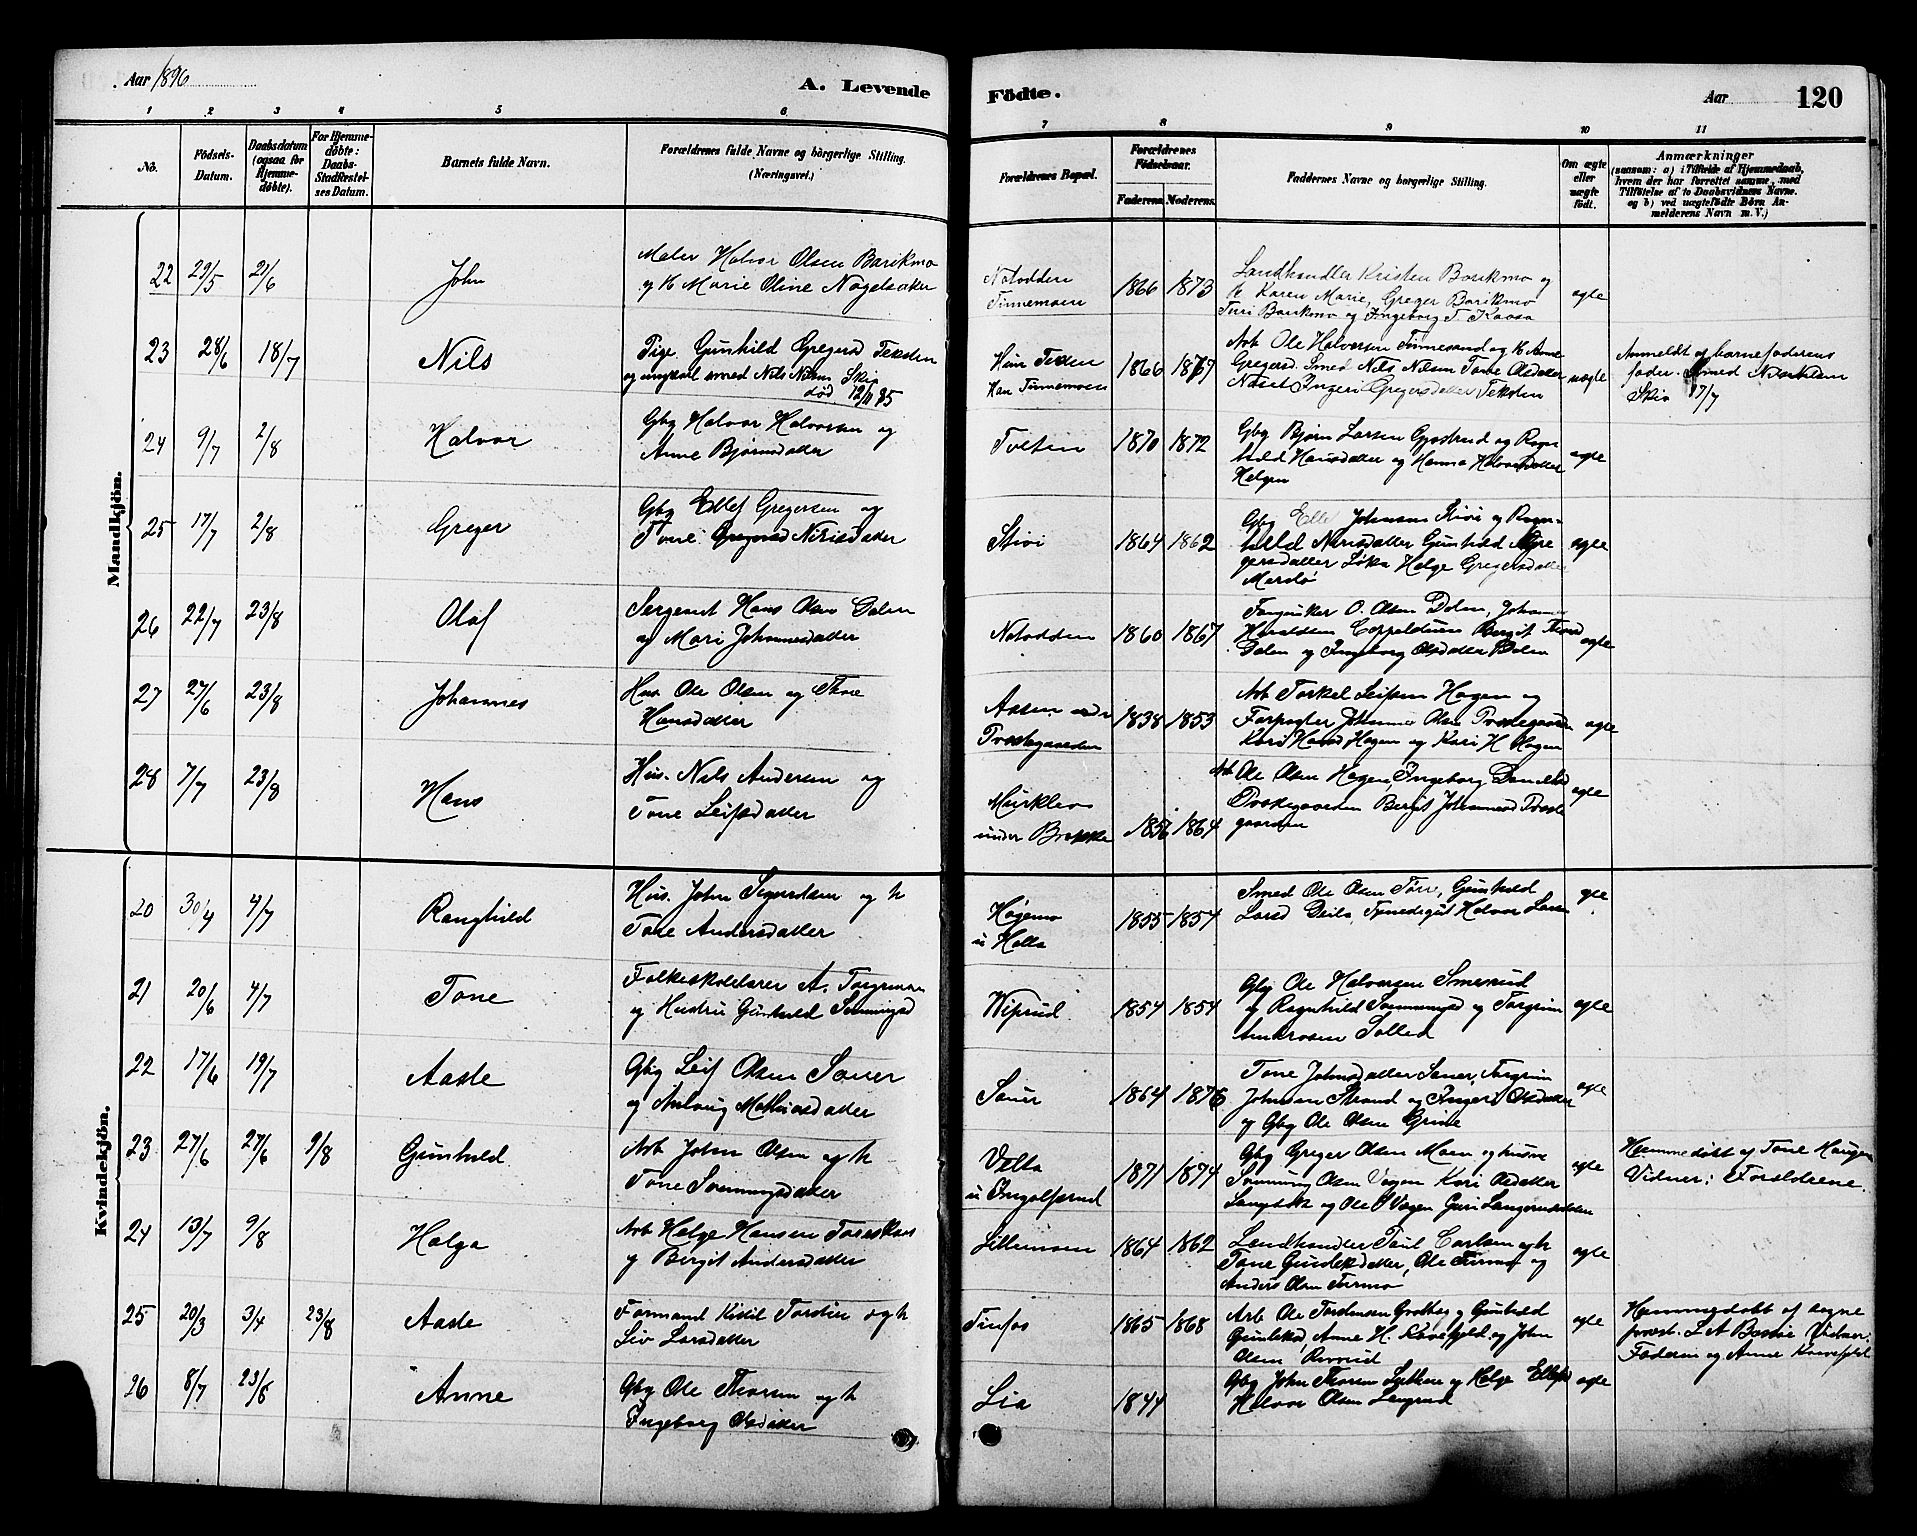 Aar 1896
A. Levende
Födte.
Aar
120
1 2 3 4 5 6 7 8 9 10 11
No.
Födsels-
Datum.
Daabsdatum
(ogsaa for
Hjemme-
döbte).
For Hjemme-
döbte:
Daabs-
Stadfæstel-
ses Datum.
Barnets fulde Navn.
Forældrenes fulde Navne og borgerlige Stilling.
(Næringsvei.)
Forældrenes Bopæl.
Forældrenes
Födselsaar.
Faderens
Moderens
Faddernes Navne og borgerlige Stilling.
Om ægte
eller
uægte
födt.
Anmærkninger
(saasom: a) i Tilfælde af Hjemmedaab,
hvem der har forrettet samme, med
Tilföielse af to Daabsvidners Navne.
og b) ved uægtefödte Börn An-
melderens Navn m. V.)
Mandkjön.
22 29/5 21/6 John
Maler Halvor Olsen Barikmo
og k Marie Oline Nagelsaker
Notodden
Tinnemoen
1866 1873
Landhandler Kristen Barikmo og
k Karen Marie, Greger Barikmo
Turi Barikmo og Ingeborg T. Kaasa
ægte
23 28/6 18/7 Nils
Pige Gunhild Gregersd Teksten
og ungkarl smed Nils Nilsen Skie
död 12/11 95
Hun Teksten
Han Tinnemoen
1866 1869
Arb Ole Halvorsen Tinnesand og k Anne
Gregersd. Smed Nils Nilsen Tone Olsdatter
Næset Ingeri Gregersdatter Teksten
uægte
Anmeldt af barnefaderens
fader. Smed Nils Nilsen
Skie 17/7
24 9/7 2/8 Halvor
Gbg Halvor Halvorsen og
Anne Bjørnsdatter
Tveten
1870 1872
Gbg Bjørn Larsen Gjøstrud og Ragn-
hild Hansdatter og Hanna Halvorsdatter
Helgen
ægte
25 17/7 2/8 Greger
Gbg Ellef Gregersen og
Tone Gregersd Nirisdatter
Stivi
1864 1862
Gbg Ellef Johnsen Stivi og Ragn-
hild Nirisdatter Gunhild Gre
gersdatter Løka Helge Gregersdatter
ægte
26 22/7 23/8 Olaf
Sergeant Hans Olsen Dalen
og Mari Johannesdatter
Notodden
1860 1867
O. Olsen Dalen, Johannes
Haraldsen Bergit
Dalen og Ingeborg Olsdatter Dalen
ægte
27 27/6 23/8 Johannes
Hus Ole Olsen og Tone
Hansdatter
Aasen under
Præstegaarden
1838 1853
Arb Torkel Leifsen Hagen og
Forpagter Johannes Olsen Præstegaarden
Kari Hansd Hagen og Kari H Hagen
ægte
28 7/7 23/8 Hans
Hus. Nils Andersen og
Tone Leifsdatter
under Brække
1856 1864
Arb Ole Olsen Hagen, Ingeborg
Præstegaarden Bergit Johannesd Præste
gaarden
ægte
Kvindekjön.
20 30/4 4/7 Ranghild
Hus. John Sigurdsen og k
Tone Andersdatter
Høgemo
u Holla
1855 1854
Smed Ole Olsen Tone, Gunhild
Larsd Halvor Larsen
ægte
21 20/6 4/7 Tone
Folkeskolelærer A. Torgrimsen
og Hustru Gunhild Sveinungsd
Wiprud
1854 1854
Gbg Ole Halvorsen Smerud
og Ragnhild Sveinungsd og Torgrim
ægte
22 17/6 19/7 Aaste
Gbg Leif Olsen Sauer
og Aslaug Mathiasdatter
Sauer
1864 1876
Tone Johnsdatter Sauer, Torgrim
Johnsen Strand og Ingeri Olsdatter
og Gbg Ole Olsen Grine
ægte
23 27/6 27/6 9/8 Gunhild
Arb John Olsen og k
Tone Sveinungsdatter
Velta
u Ingolfsrud
1871 1874
Gbg Greger Olsen Moen og hustru
Sveinung Olsen Vegen Kari Olsdatter
og Ole O Vegen Guri
ægte
Hjemmedøbt af Tone Haugen
Vidner: Forældrene.
24 13/7 9/8 Helga
Arb Helge Hansen
og Bergit Andersdatter
Lillemoen
1864 1862
Landhandler Paul Carlsen og k
Tone Gunleiksdatter, Ole og
Anders Olsen
ægte
25 20/3 3/4 23/8 Aaste
Formand Kittil Tordsen og k
Liv Larsdatter
Tinfos
1865 1868
Arb Ole Tordensen og Gunhild
Gunleiksd, Anne H. og John
Olsen
ægte
Hjemmedøbt af sogne
præst. Vidner
Faderen og Anne
26 8/7 23/8 Anne
Gbg Ole Thorsen og k
Ingeborg Olsdatter
Lia
1844
Gbg John Thorsen og Helge
Halvor Olsen
ægte